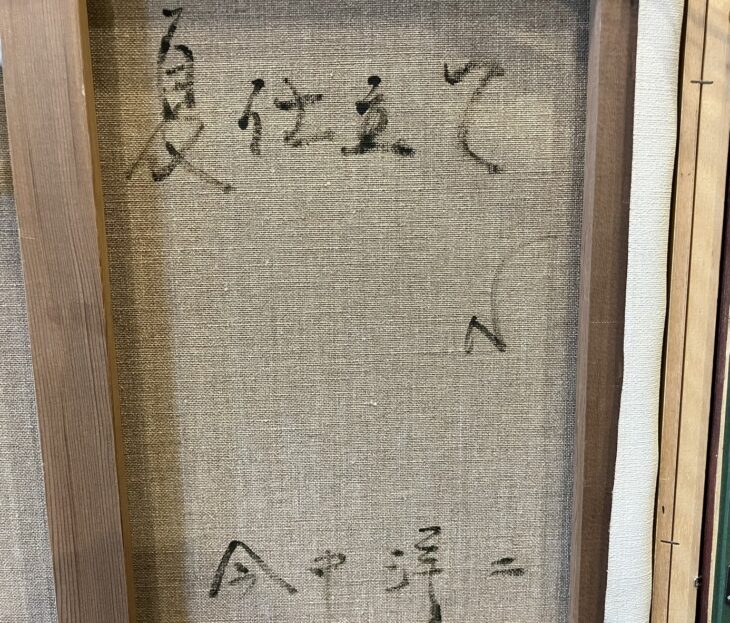 夏仕立て
今中洋二